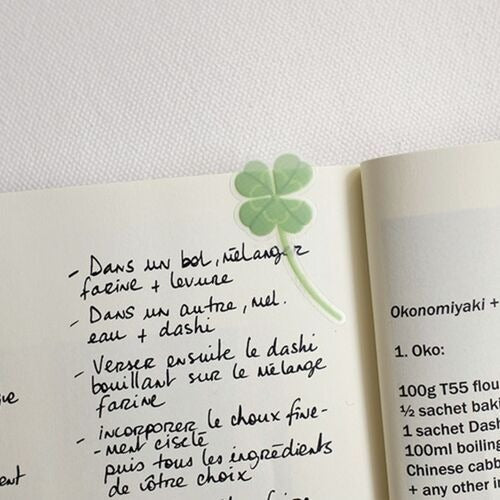 - Dans un bol, mélanger
farine + levure
- Dans un autre, mel.
eau + dashi
- Verser ensuite le dashi
bouillant sur le mélange
farine
- incorporer le choux fine-
- ment ciselé
puis tous les ingrédients
de côtre choix
Okonomiyaki +
1. Oko:
100g T55 flou
½ sachet baki
1 sachet Dash
100ml boiling
Chinese cabb
+ any other in